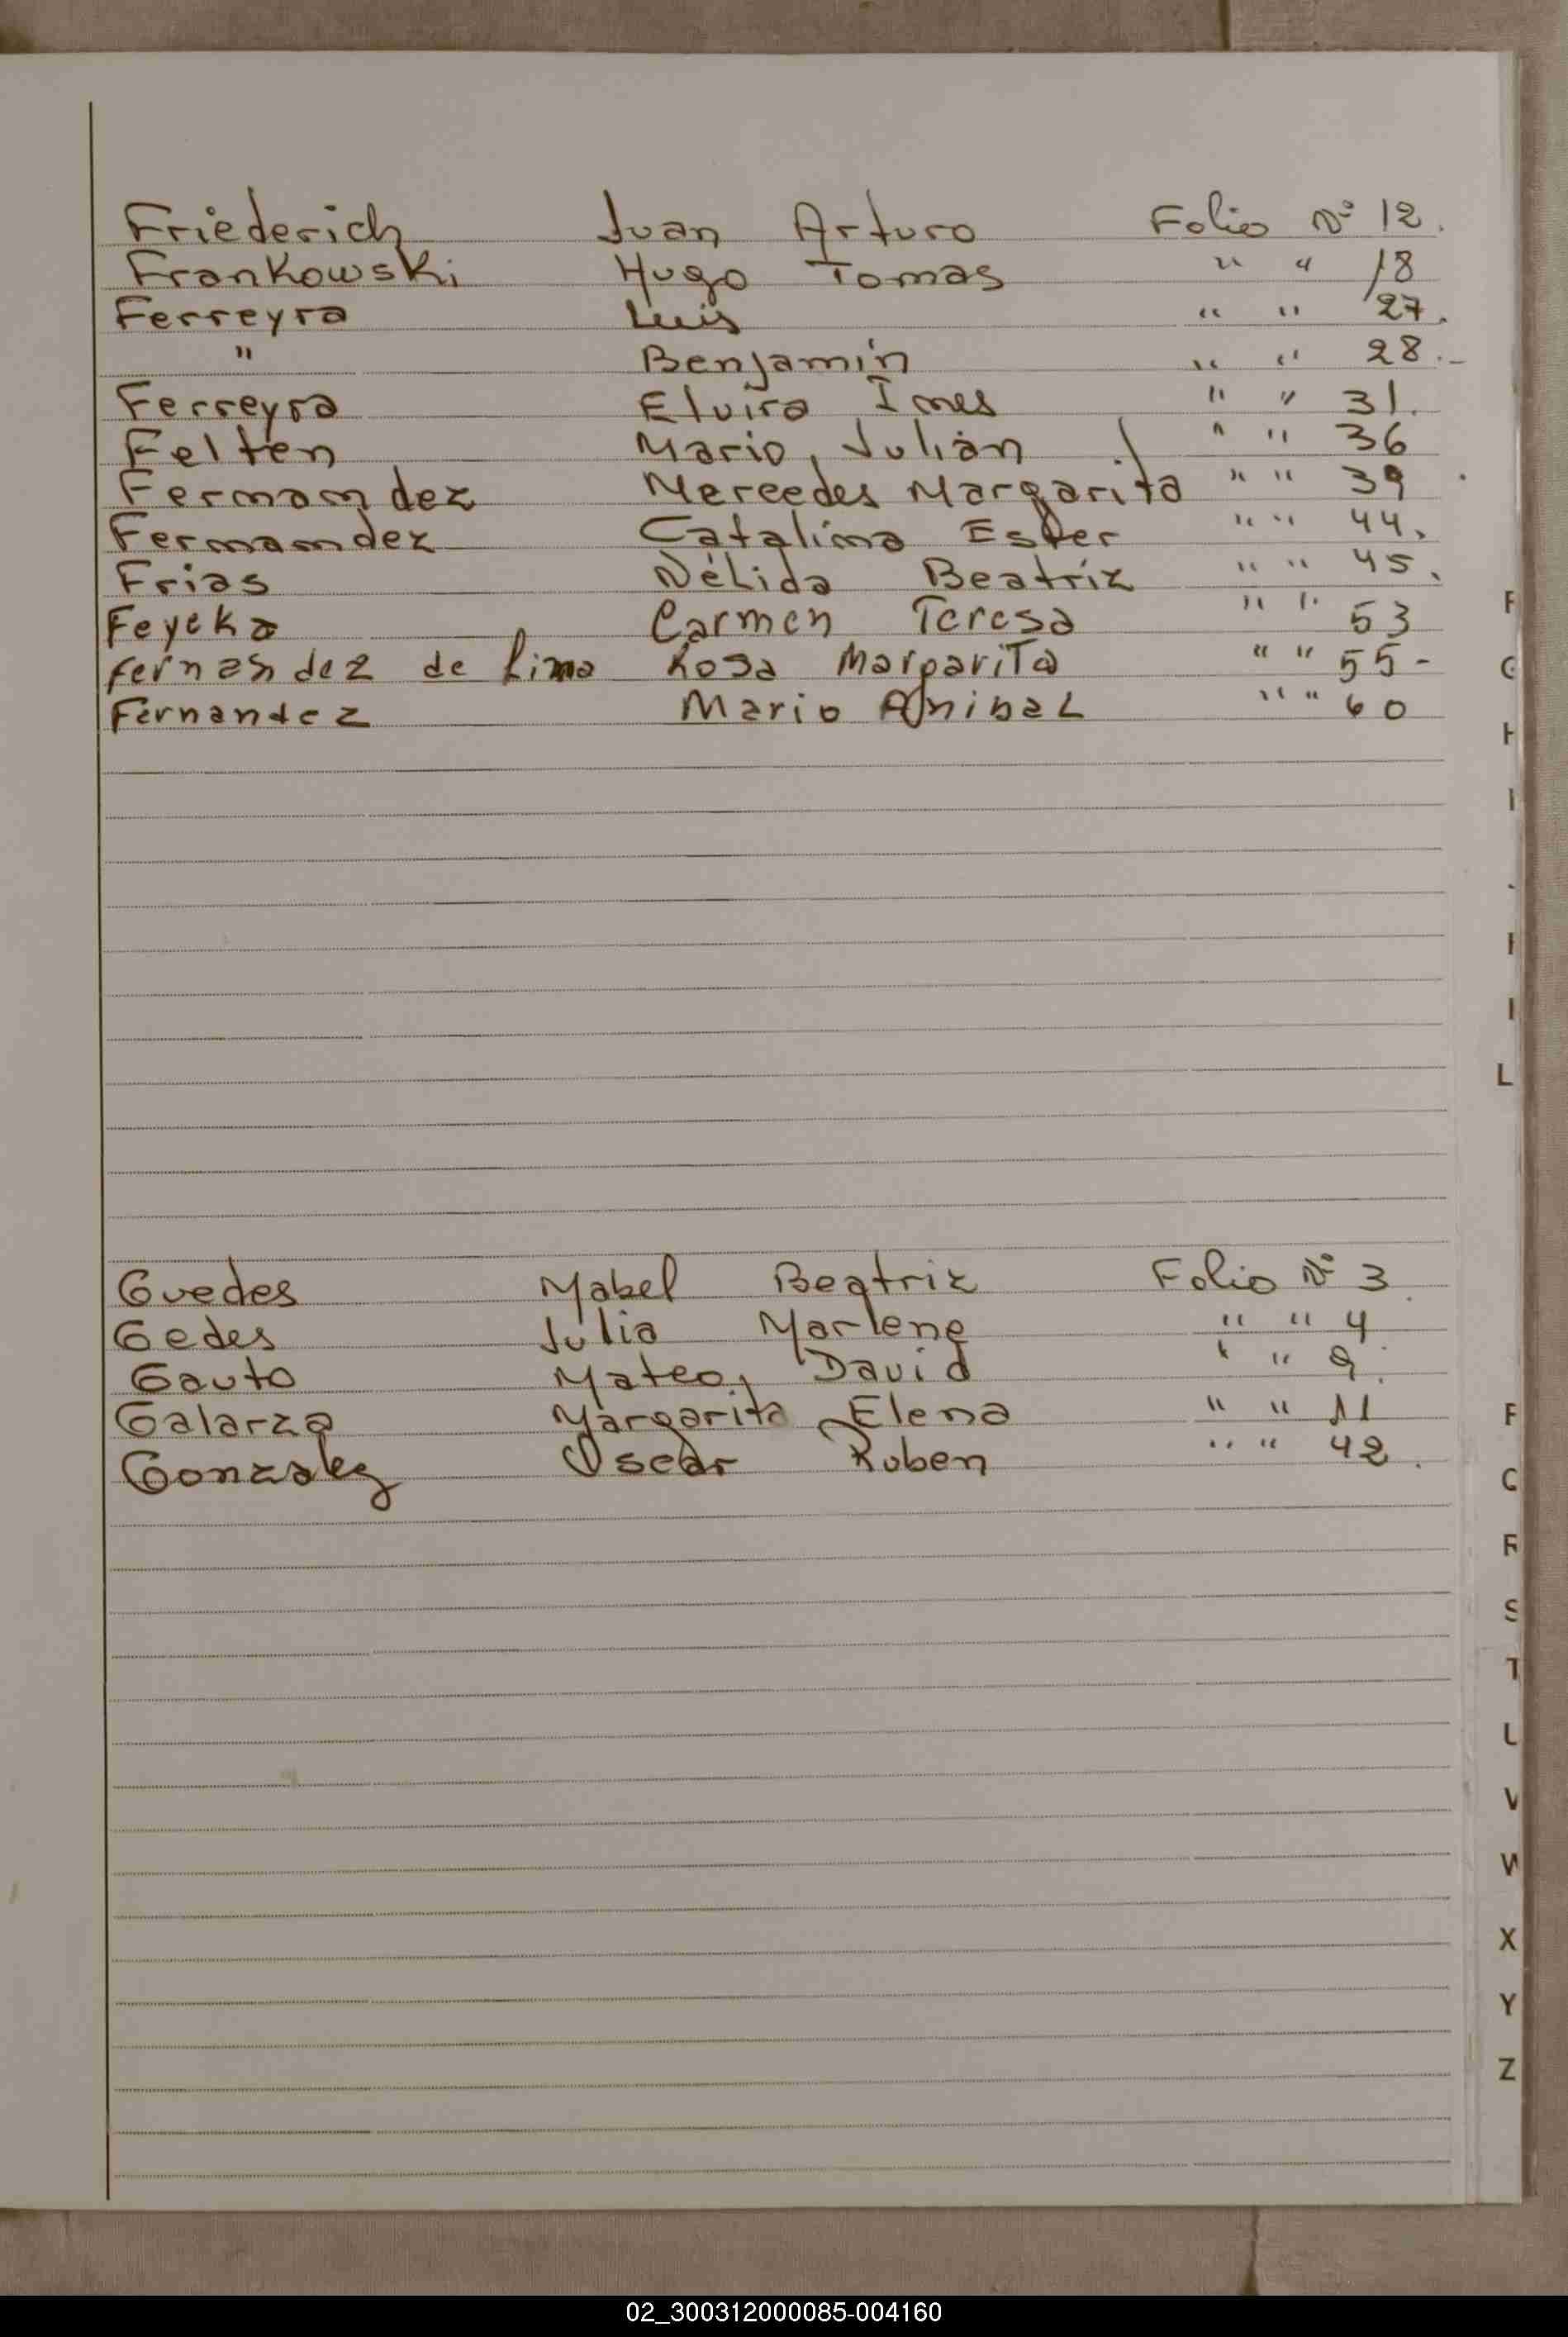 Friederich Juan Arturo Folio Nº 12.
Frankowski Hugo Tomas " " 18
Ferreyra Luis " " 27.
" Benjamín " " 28.-
Ferreyra Elvira Ines " " 31.
Felten Mario, Julián " " 36
Fernandez Mercedes Margarita " " 39
Fernandez Catalina Ester " " 44.
Frias Nélida Beatríz " " 45.
Feyeka Carmen Teresa " " 53
Fernandez de Lima Rosa Margarita " " 55-
Fernandez Mario Anibal " " 60
Guedes Mabel Beatriz Folio Nº 3.
Gedes Julia Marlene " " 4
Gauto Mateo, David " " 9.
Galarza Margarita Elena " " 11
Gonzalez Oscar Ruben " " 42.
L
S
X
Y
Z
02_300312000085-004160